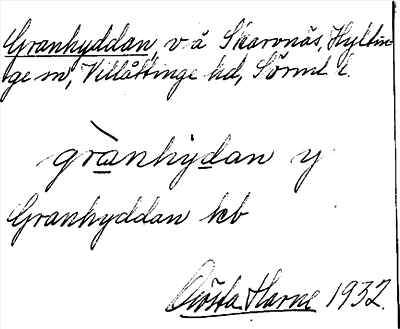 Granhyddan, v. å Skarvnäs, Hyltin-
ge sn, Villåttinge hd, Sörml. l.
grànhýdan y
Granhyddan kb
Gösta Harne 1932.